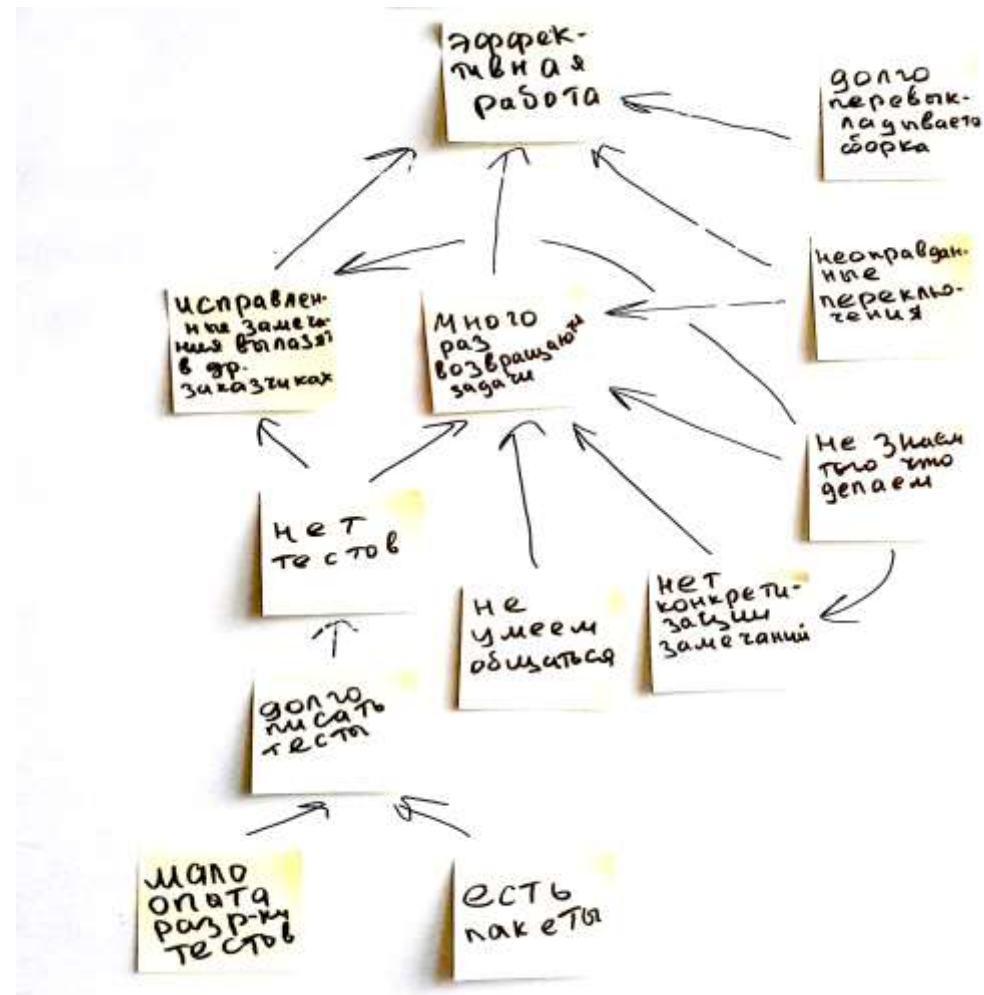 эффек-
тивная
работа
долго
перевык-
ладывается
сборка
неоправдан-
ные
переклю-
чения
исправлен-
ные замеча-
ния вылазят
в др.
заказчиках
много
раз
возвращают
задачи
не знаем
того что
делаем
нет
тестов
не
умеем
общаться
нет
конкрети-
зации
замечаний
долго
писать
тесты
мало
опыта
разр-ки
тестов
есть
пакеты